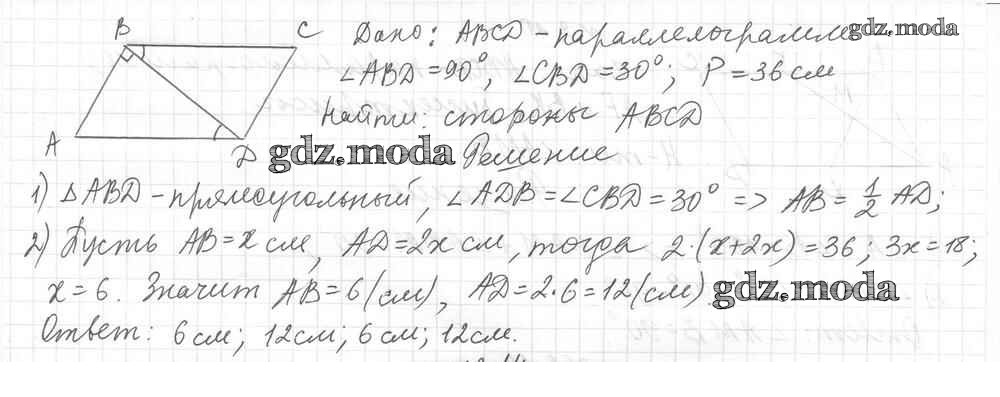 B C Дано: ABCD - параллелограмм gdz.moda
∠ABD = 90°, ∠CBD = 30°; P = 36 см
Найти: стороны ABCD
A D gdz.moda Решение
1) △ABD - прямоугольный, ∠ADB = ∠CBD = 30° => AB = 1/2 AD;
2) Пусть AB = x см, AD = 2x см, тогда 2·(x+2x) = 36; 3x = 18;
x = 6. Значит AB = 6 (см), AD = 2·6 = 12 (см) gdz.moda
Ответ: 6 см; 12 см; 6 см; 12 см.